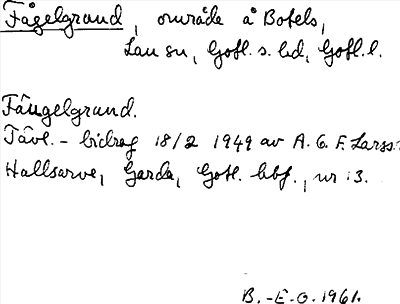 Fågelgrund, område å Botels,
Lau sn, Gotl. s. hd, Gotl. l.
Fåugelgrund.
Tävl.-bidrag 18/2 1949 av A. G. F. Larss.
Hallsarve, Garda, Gotl. hbf., nr 3.
B.-E.O. 1961.